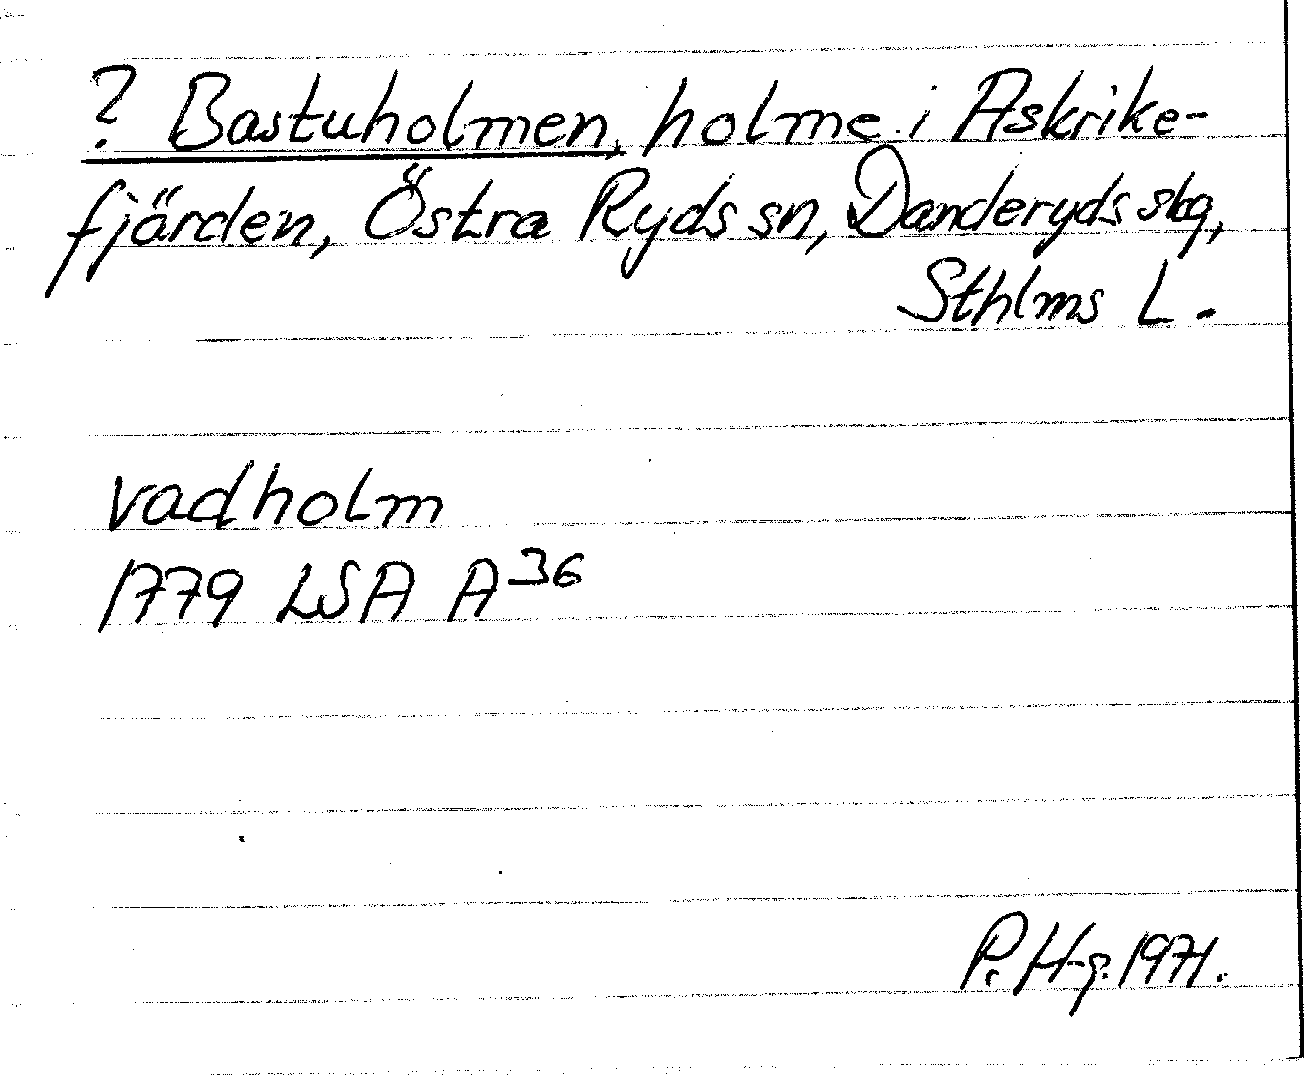 ? Bastuholmen, holme i Askrike-
fjärden, Östra Ryds sn, Danderyds sbg,
Sthlms L.
vadholm
1779 LSA A36
P. Hg. 1971.